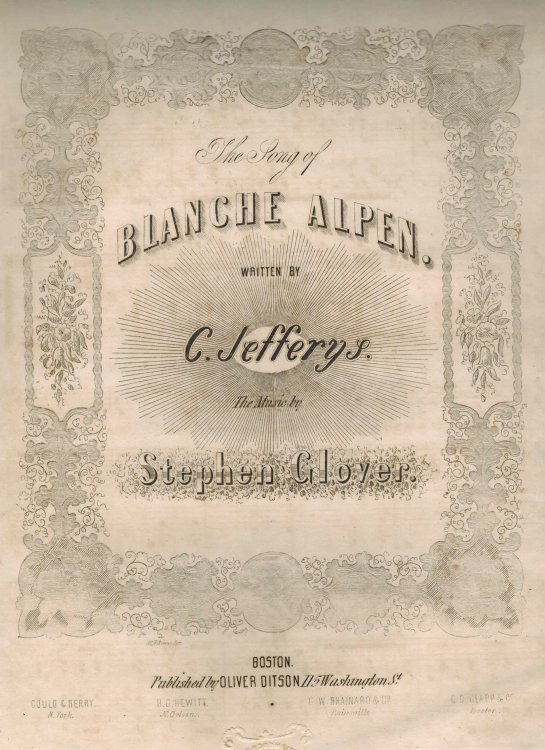 The Song of
BLANCHE ALPEN.
WRITTEN BY
C. Jefferys.
The Music by
Stephen Glover.
BOSTON.
Published by OLIVER DITSON 115 Washington St
GOULD & BERRY. H. D. HEWITT. C. W. BRAINARD & Co. C. C. CLAPP & Co
N. York. N. Orleans. Louisville Boston.